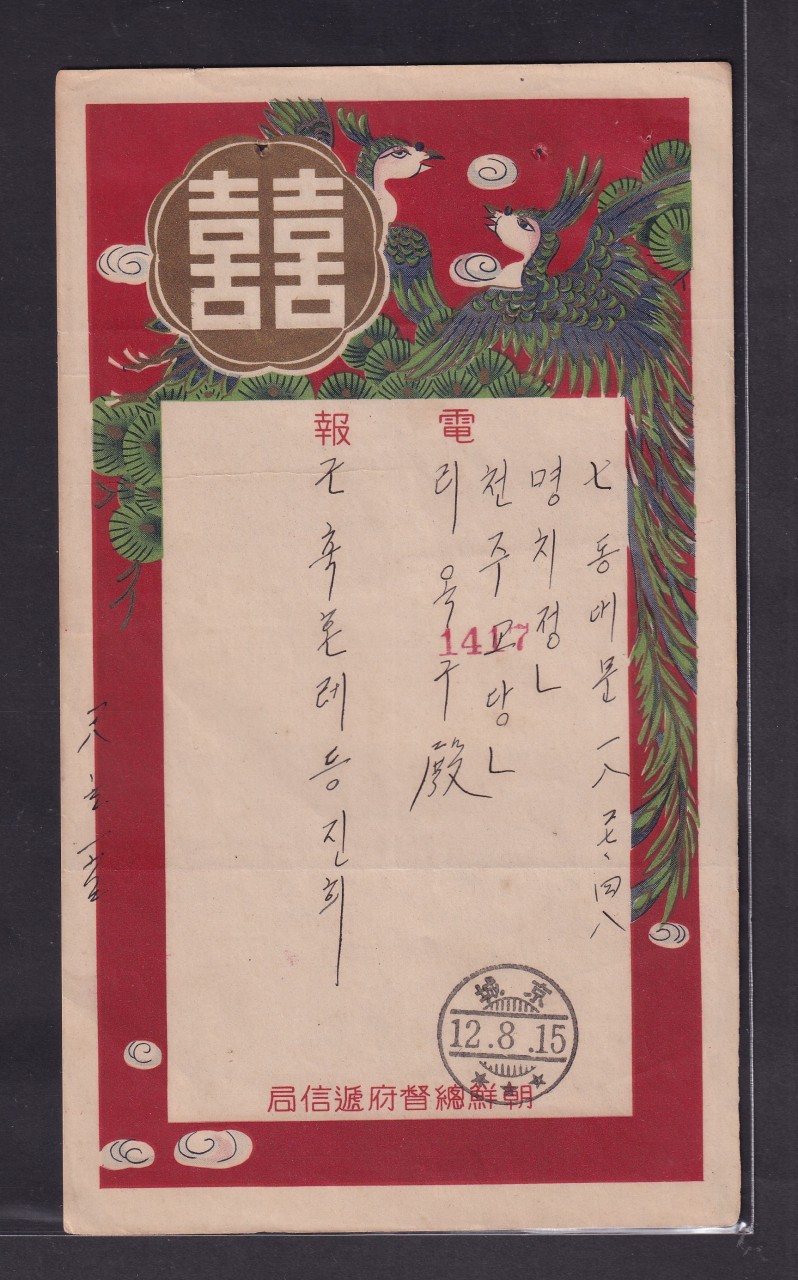 囍
電報
七 동대문 一八
명치정ㄴ
천주교당ㄴ
리옥구殿
근축혼례등진희
1417
京城
12.8.15
朝鮮總督府遞信局